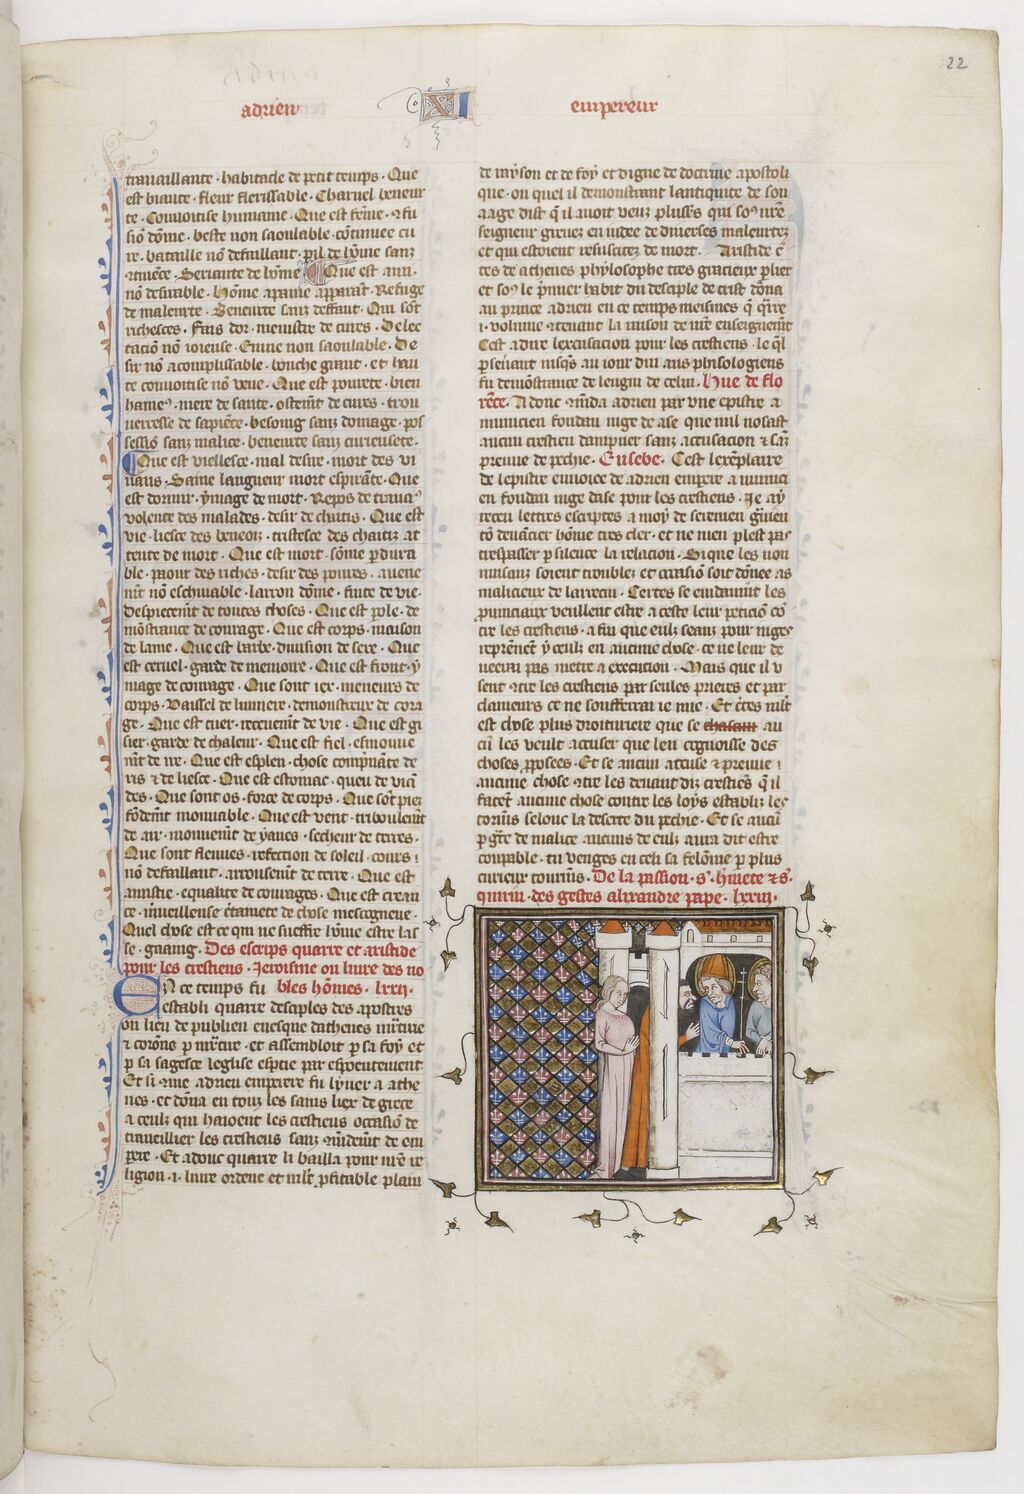 22
adrien XI empereur
travaillante · habitacle de petit temps · Que
est biaute · fleur flerissable · Charnel beneur
te · Convoitise humaine · Que est feme · 9fu
siõ dõme · beste non saoulable · cõtinuee cu
re · bataille nõ defaillant · pil de lõme sanz
Seriante de lõme Que est ami ·
nõ desirable · hõme apaine apparãt · Refuge
de maleurte · Beneurte sanz deffaut · Qui sõt
richesces · Fais dor · menistre de cures · Delec
taciõ nõ ioieuse · Envie non saoulable · De
sir nõ acomplissable · bouche grant · et hau
te convoitise nõ veue · Que est povrete · bien
hame9 · mere de sante · ostemt de cures · trou
verresse de sapiẽce · besoing sanz domage · pos
sessiõ sanz malice · beneurte sanz curieusete ·
Que est viellesce · mal desire · mort des vi
vans · Saine langueur mort espirãte · Que
est dormir · ymage de mort · Repos de travax
volente des malades · desir de chaitis · Que est
vie · liesce des beneoiz · tristesce des chaitiz at
tente de mort · Que est mort · sõme pdura
ble · paour des riches · desir des povres · avene
mt nõ eschivable · larron dõme · fuite de vie ·
despiecemt de toutes choses · Que est pole · de
mõstrance de courage · Que est corps · maison
de lame · Que est barbe · division de sexe · Que
est cervel · garde de memoire · Que est front · y
mage de courage · Que sont iex · meneurs de
corps · Vaissel de lumiere · demonstreur de cora
ge · Que est cuer · recevemt de vie · Que est gi
sier · garde de chaleur · Que est fiel · esmouve
mt de ire · Que est esplen · chose compnãte de
ris 7 de liesce · Que est estomac · queu de viã
des · Que sont os · force de corps · Que sõt piez
fõdemt mouvable · Que est vent · triboulemt
de air · mouvemt de yaues · secheur de terres ·
Que sont fleuves · refection de soleil · cours
nõ defaillant · arrousemt de terre · Que est
amistie · equalite de courages · Que est crean
ce · mveilleuse ctainete de chose mescogneue ·
Quel chose est ce qui ne sueffre lõme estre las
se · gaaing · Des escrips quarre et aristide
pour les crestiens · Jeroisme ou livre des no
En ce temps fu bles hõmes · lxxij ·
establi quarre desciples des apostres
ou lieu de publien evesque dathenes mrtirie
7 corõne p mrtire · et assembloit p sa foy et
p sa sagesce leglise esptie par espoentement ·
Et si 9me adrien emperere fu lyver a athe
nes · et dõna en touz les sains liex de grece
a ceulz qui haioent les crestiens occasiõ de
traveillier les crestiens sanz 9mãdemt de em
pere · Et adonc quarre li bailla pour nre re
ligion · i · livre ordene et mlt pfitable plain
de rayson et de foy et digne de doctrine apostoli
que · ou quel il demonstrant lantiquite de son
aage dist q il avoit veuz plusrs qui so9 nre
seigneur grevez en iudee de diverses maleurtez
et qui estoient resuscitez de mort · Aristide e
tes de athenes phylosophe tres gracieux plier
et so9 le pmier habit du desciple de crist dõna
au prince adrien en ce temps meismes q qrre
i · volume 9tenant la raison de nre enseignemt
Cest adire lexcusation pour les crestiens · le ql
pseverant iusqs au iour dui aus philsologiens
fu demõstrance de lengin de celui · Hue de flo
rẽce · Adonc 9mãda adrien par une epistre a
municien fondan iuge de ase que nul nosast
aucun crestien dampner sanz accusacion 7 sãz
preuve de pechie · Eusebe · Cest lexẽplaire
de lepistre envoiee de adrien empere a munici
en fondan iuge dase pour les crestiens · Je ay
receu lettres escriptes a moy de serenien gnien
tõ devãcier hõme tres cler · et ne men plest pas
trespasser p silence la relacion · Si que les non
nuisanz soient troublez et occasiõ soit dõnee as
malicieux de larrecin · Certes se evidãmt les
pvinciaux veullent estre a ceste leur peticiõ cõ
tre les crestiens · a fin que eulz seanz pour iuges
reprenent y ceulz en aucune chose · ce ne leur de
veerai pas metre a execucion · Mais que il u
sent 9tre les crestiens par seules prieres et par
clameurs ce ne soufferrai ie mie · Et ctes mlt
est chose plus droituriere que se chascun au
cũ les veult accuser que len cognoisse des
choses pposees · Et se aucun accuse 7 preuve
aucune chose 9tre les devant diz crestiẽs q il
facent aucune chose contre les loys establiz les
tormẽs selonc la deserte du pechie · Et se aucũ
p gre de malice aucuns de eulz aura dit estre
coupable · tu venges en celi sa felõnie p plus
curieux tourmẽs · De la passion · s · hmete 7 s ·
quirin · des gestes alixandre pape · lxxiij ·